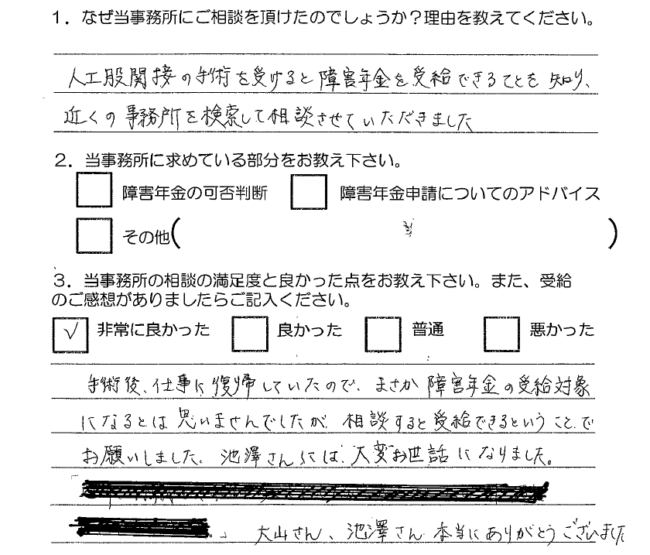 1．なぜ当事務所にご相談を頂けたのでしょうか？理由を教えてください。
人工股関接の手術を受けると障害年金を受給できることを知り、
近くの事務所を検索して相談させていただきました
2．当事務所に求めている部分をお教え下さい。
障害年金の可否判断 障害年金申請についてのアドバイス
その他( )
3．当事務所の相談の満足度と良かった点をお教え下さい。また、受給
のご感想がありましたらご記入ください。
✓ 非常に良かった 良かった 普通 悪かった
手術後、仕事に復帰していたので、まさか障害年金の受給対象
になるとは思いませんでしたが、相談すると受給できるということで
お願いしました。池澤さんには、大変お世話になりました。
大山さん、池澤さん 本当にありがとうございました